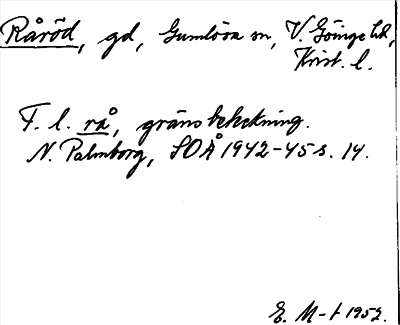 Råröd, gd, Gumlösa sn, V. Göinge hd,
Krist. l.
F. l. rå, gränsbeteckning.
N. Palmborg, SOÅ 1942-45 s. 14.
E. M-t 1952.